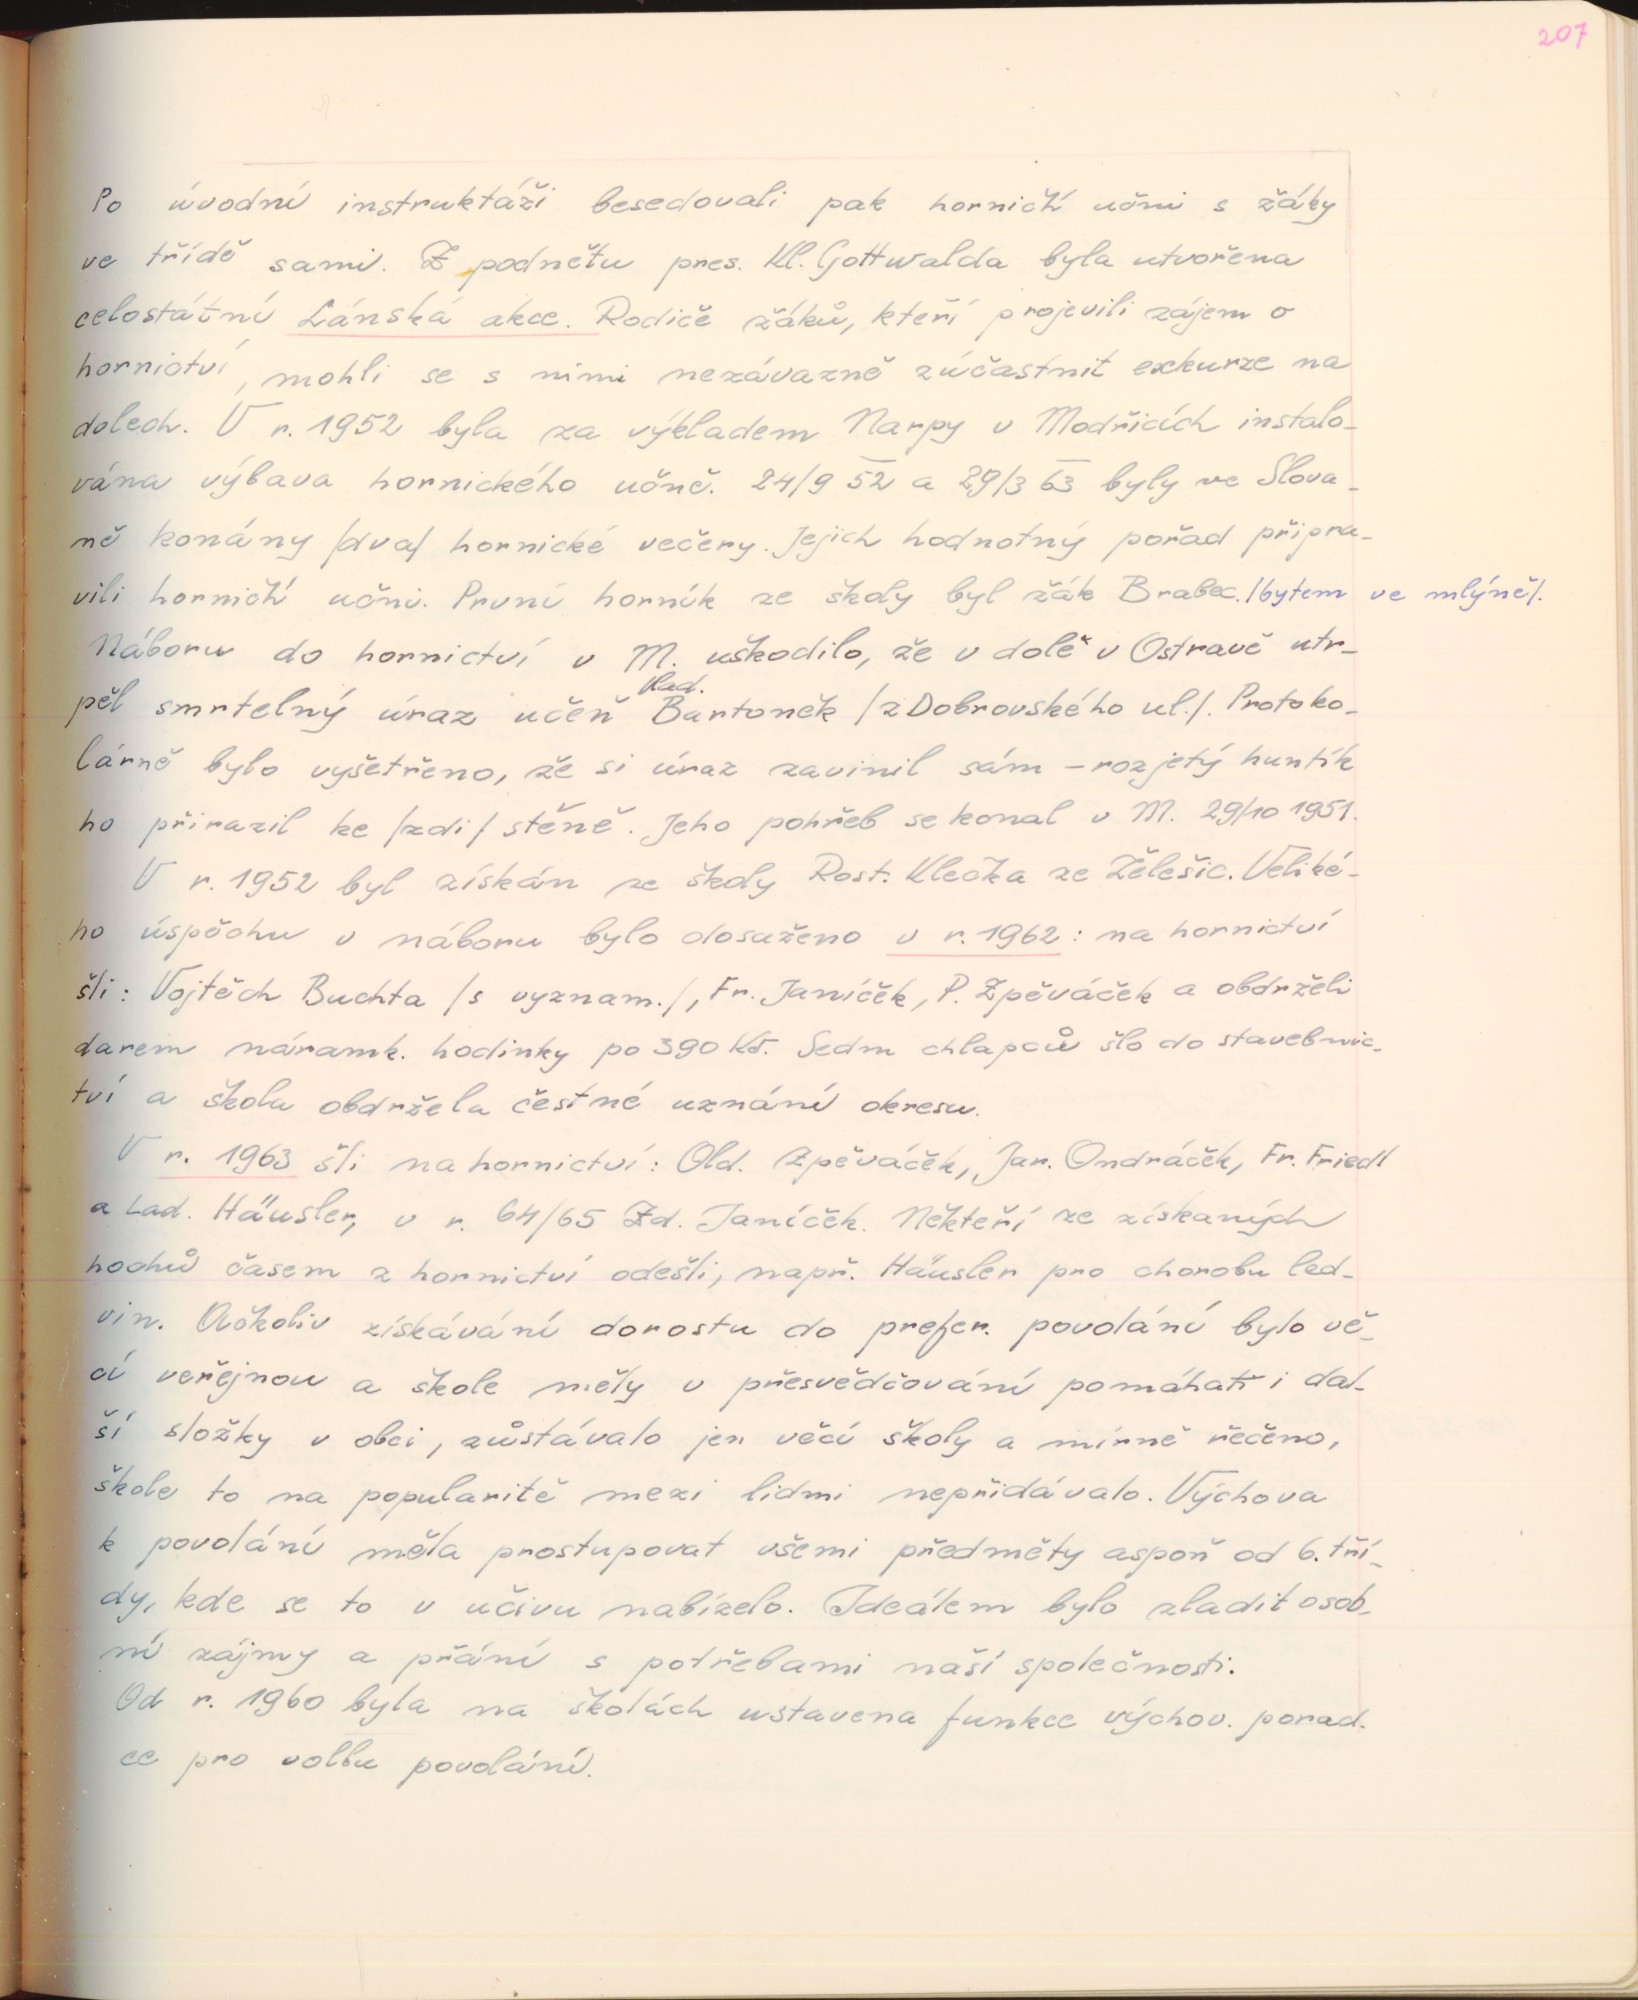 207
Po úvodní instruktáži besedovali pak horničtí učni s žáky
ve třídě sami. Z podnětu pres. Kl. Gottwalda byla utvořena
celostátní Lánská akce. Rodiče žáků, kteří projevili zájem o
hornictví, mohli se s nimi nezávazně zúčastnit exkurze na
dolech. V r. 1952 byla za výkladem Narpy v Modřicích instalo-
vána výbava hornického učně. 24/9 52 a 29/3 63 byly ve Slova-
ně konány /dva/ hornické večery. Jejich hodnotný pořad připra-
vili horničtí učni. První horník ze školy byl žák Brabec. /bytem ve mlýně/.
Náboru do hornictví v M. uškodilo, že v dole v Ostravě utr-
pěl smrtelný úraz učeň Vlad. Bartoněk /z Dobrovského ul./. Protoko-
lárně bylo vyšetřeno, že si úraz zavinil sám – rozjetý huntík
ho přirazil ke /zdi/ stěně. Jeho pohřeb se konal v M. 29/10 1951.
V r. 1952 byl získán ze školy Rost. Klečka ze Želešic. Veliké-
ho úspěchu v náboru bylo dosaženo v r. 1962: na hornictví
šli: Vojtěch Buchta /s vyznam./, Fr. Janíček, P. Zpěváček a obdrželi
darem náramk. hodinky po 390 Kč. Sedm chlapců šlo do stavebnic-
tví a škola obdržela čestné uznání okresu.
V r. 1963 šli na hornictví: Old. Zpěváček, Jar. Ondráček, Fr. Friedl
a Lad. Häusler, v r. 64/65 Zd. Janíček. Někteří ze získaných
hochů časem z hornictví odešli, např. Häusler pro chorobu led-
vin. Ačkoliv získávání dorostu do prefer. povolání bylo vě-
cí veřejnou a škole měly v přesvědčování pomáhati i dal-
ší složky v obci, zůstávalo jen věcí školy a mírně řečeno,
škole to na popularitě mezi lidmi nepřidávalo. Výchova
k povolání měla prostupovat všemi předměty aspoň od 6. tří-
dy, kde se to v učivu nabízelo. Ideálem bylo sladit osob-
ní zájmy a přání s potřebami naší společnosti.
Od r. 1960 byla na školách ustavena funkce výchov. porad-
ce pro volbu povolání.